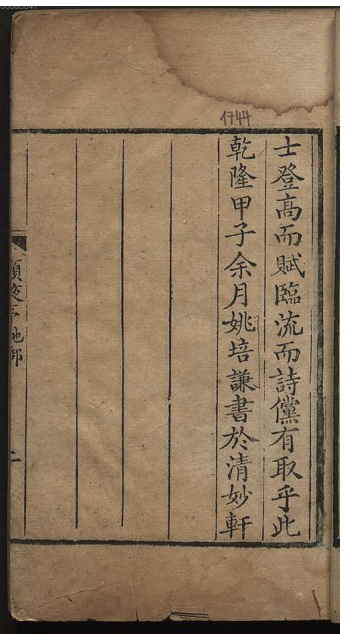 士登高而賦臨流而詩儻有取乎此
乾隆甲子余月姚培謙書於清妙軒
1744